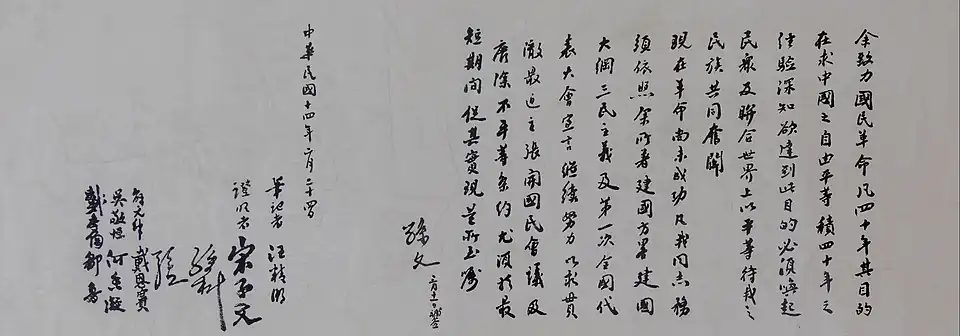 余致力國民革命凡四十年其目的
在求中國之自由平等積四十年之
經驗深知欲達到此目的必須喚起
民衆及聯合世界上以平等待我之
民族共同奮鬭
現在革命尚未成功凡我同志務
須依照余所著建國方畧建國
大綱三民主義及第一次全國代
表大會宣言繼續努力以求貫
澈最近主張開國民會議及
廢除不平等條約尤須於最
短期間促其實現是所至囑
孫文 三月十一日補簽
中華民國十四年二月二十四日
筆記者 汪精衛
證明者 宋子文
孫科
邵元冲 戴恩賽
吳敬恆 何香凝
鄒魯